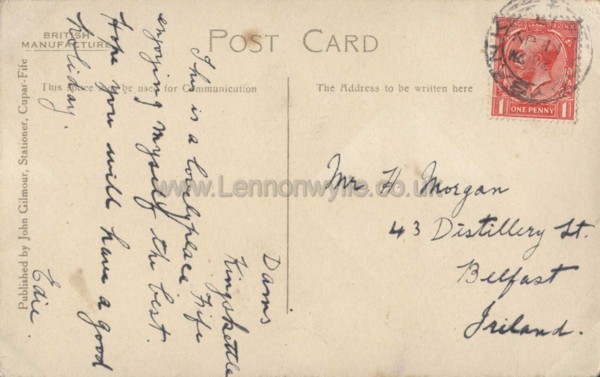 BRITISH
MANUFACTURE
POST CARD
This space to be used for Communication
The Address to be written here
Published by John Gilmour, Stationer, Cupar-Fife
Dams
Kingskettle
Fife
This is a lovely place
enjoying myself the best.
Hope you will have a good
holiday.
Edie.
Mr H Morgan
43 Distillery St.
Belfast
Iriland.
1 ONE PENNY 1
www.Lennonwylie.co.uk